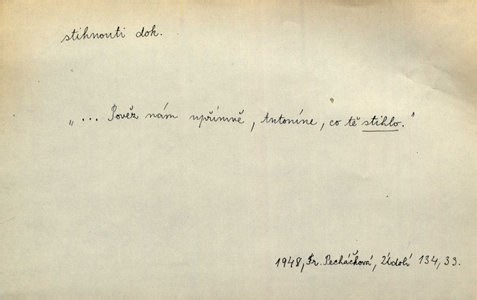 stihnouti dok.
„... Pověz nám upřímně, Antoníne, co tě stihlo."
1948, Fr. Pecháčková, Údolí 134, 33.